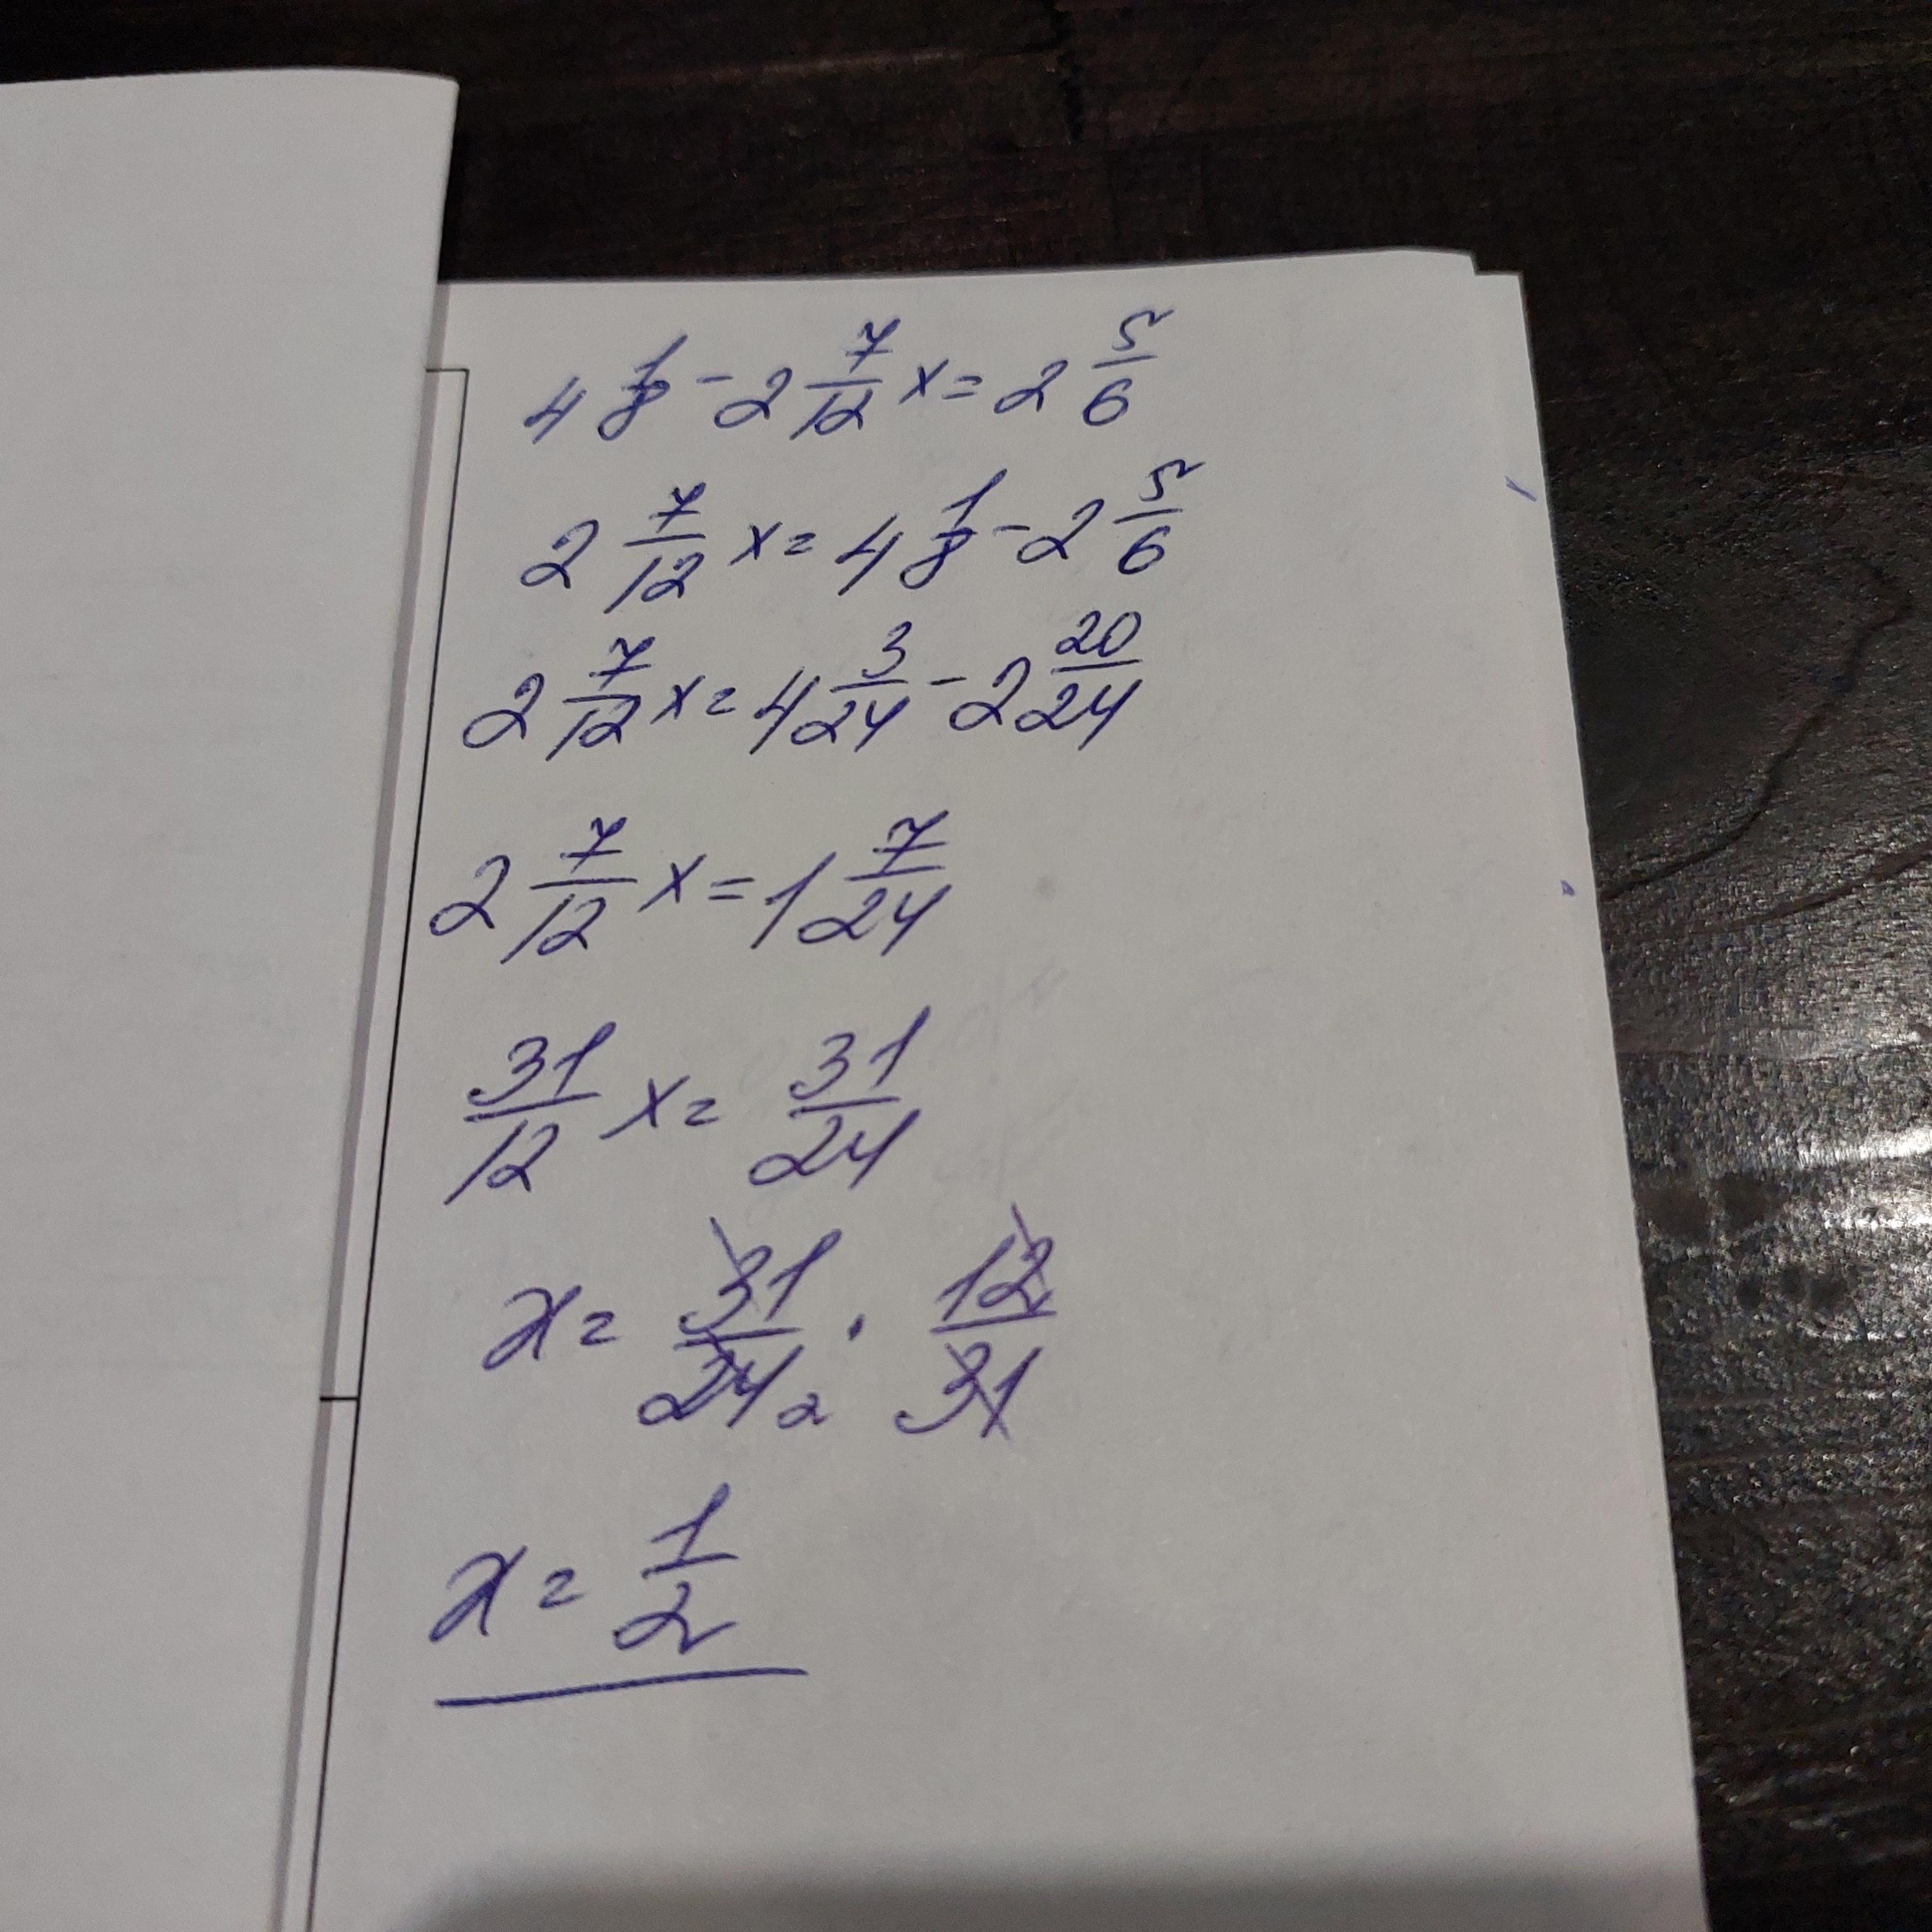 4 1/8 - 2 7/12 x = 2 5/6
2 7/12 x = 4 1/8 - 2 5/6
2 7/12 x = 4 3/24 - 2 20/24
2 7/12 x = 1 7/24
31/12 x = 31/24
x = 31/24 2 · 12/31
x = 1/2